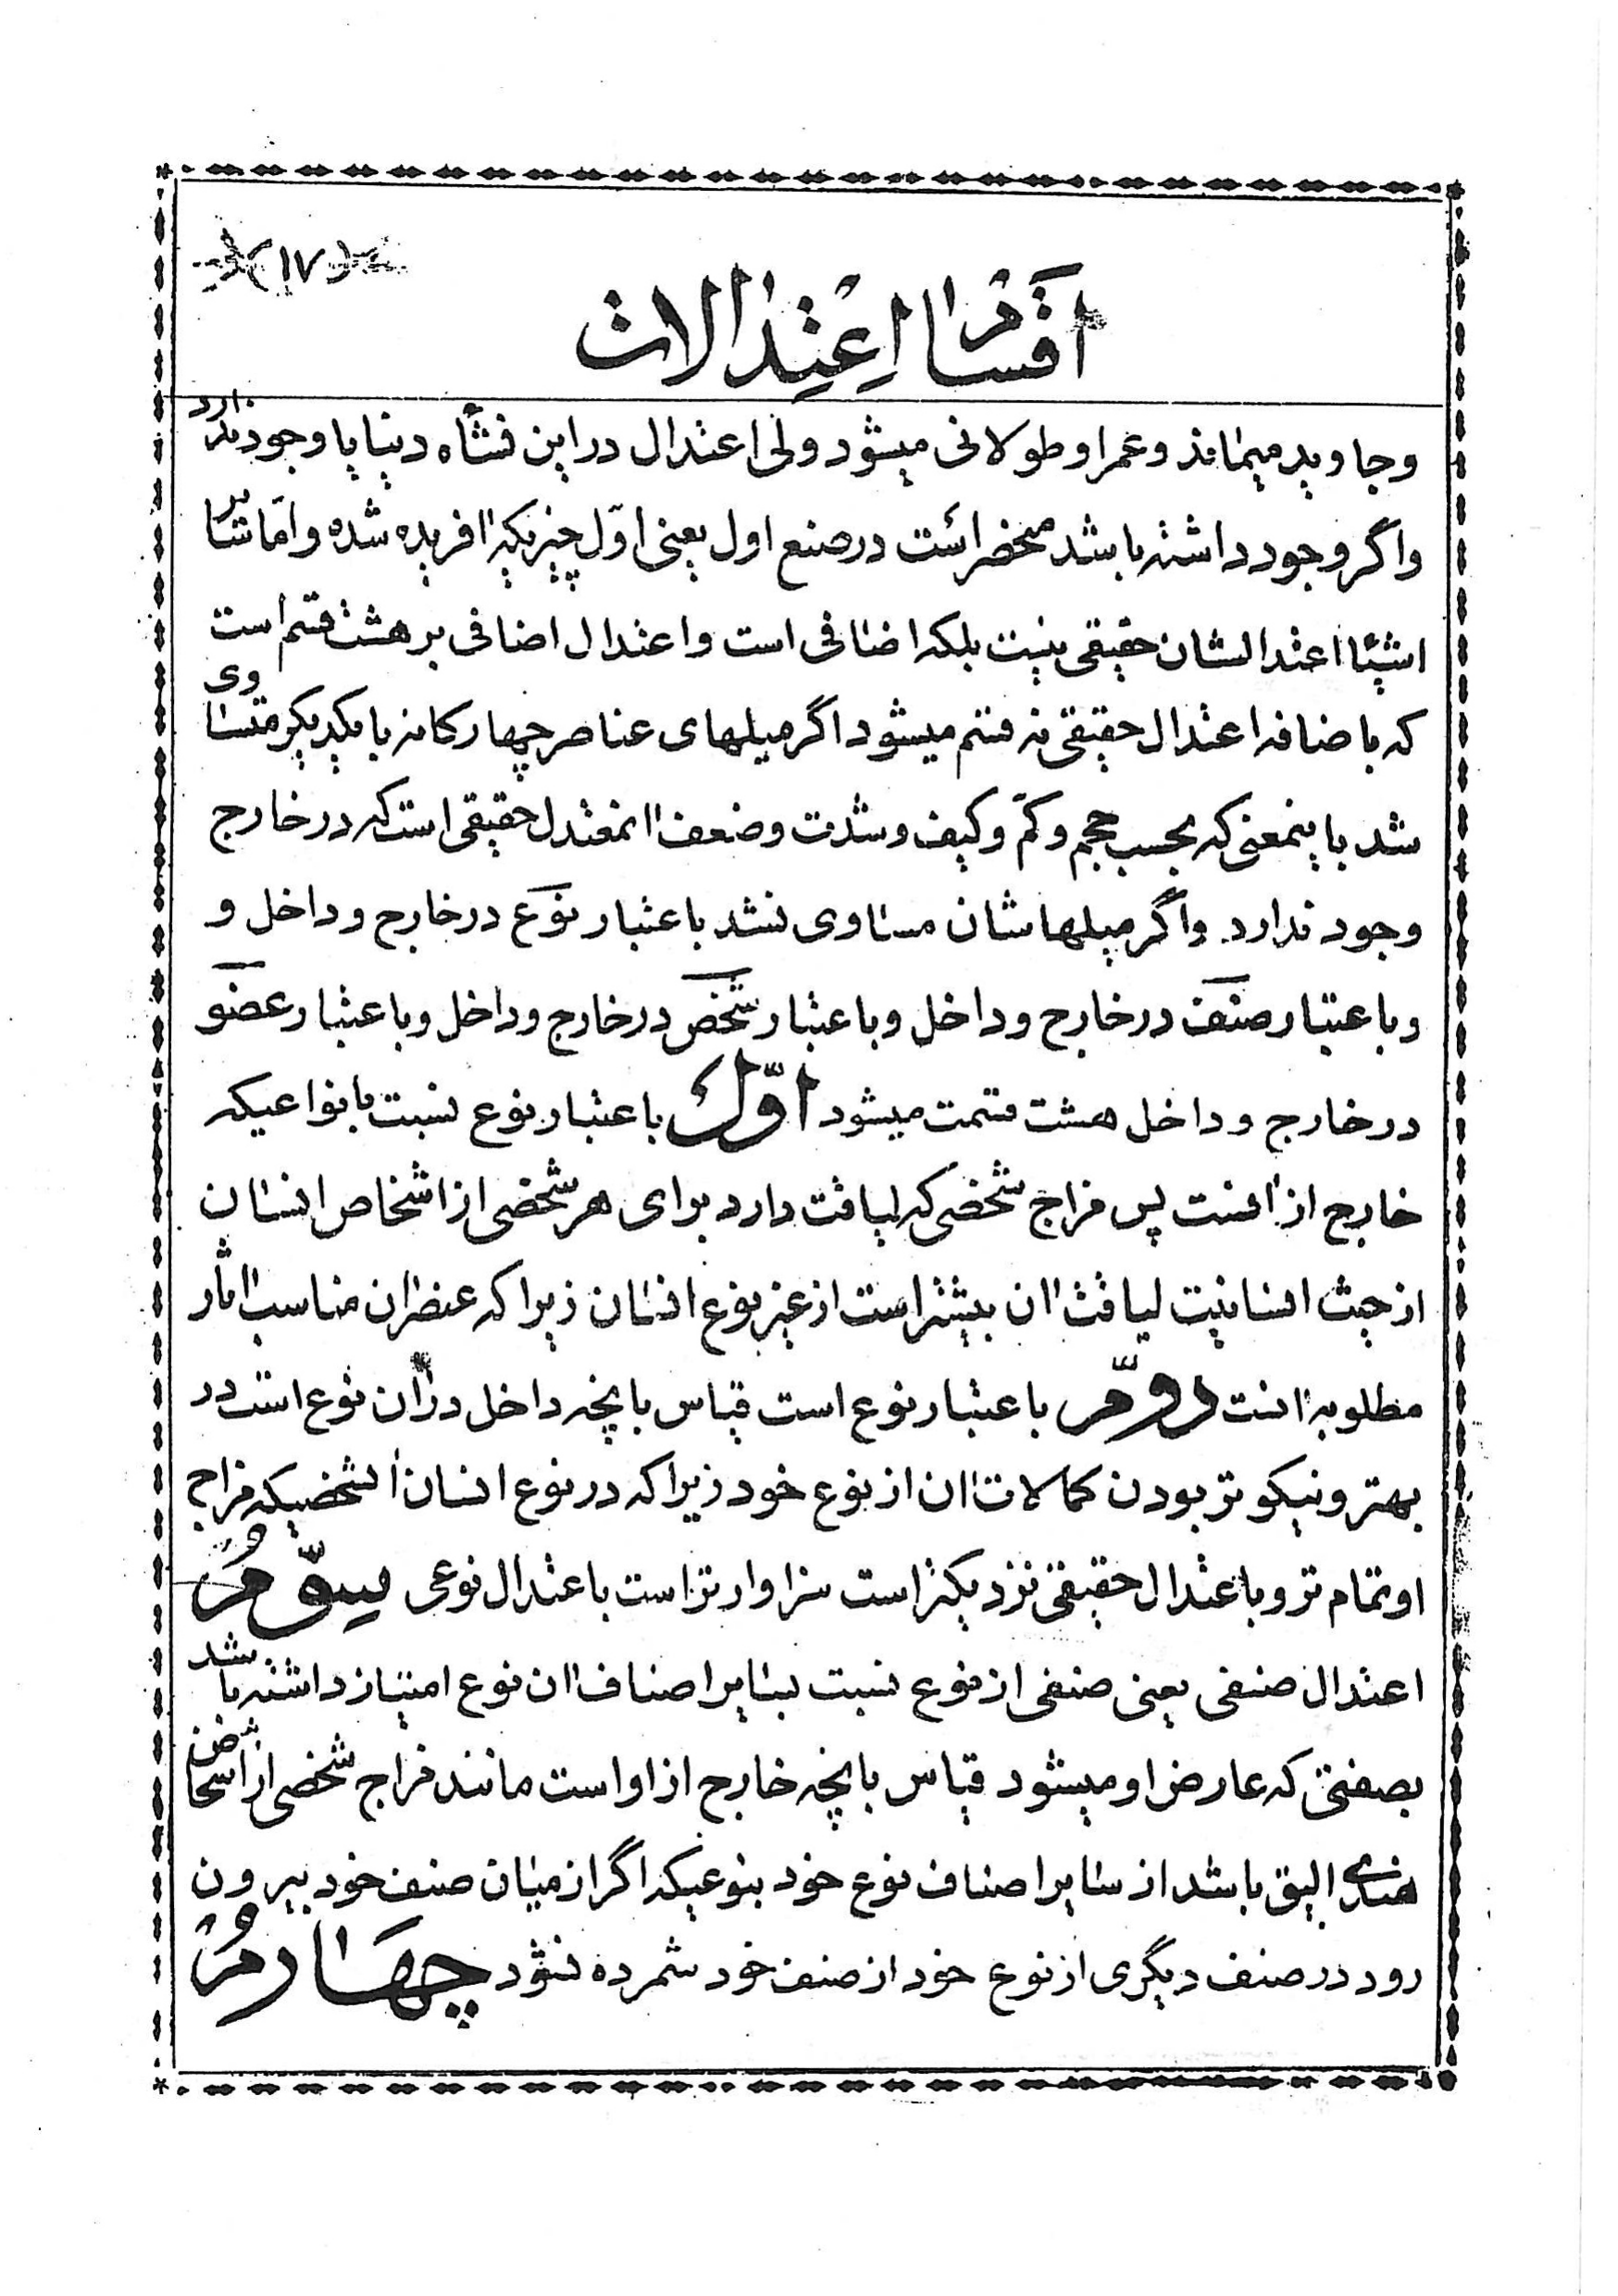 (۱۷)
اقسام اعتدالات
وجاوید میماند و عمر او طولانی میشود ولی اعتدال در این نشأه دنیا یا وجود ندارد
واگر وجود داشته باشد منحصر است در صنع اول یعنی اوّل چیزیکه افریده شده و امّا سایر
اشیٔا اعتدالشان حقیقی نیست بلکه اضافی است و اعتدال اضافی بر هشت قسم است
که باضافه اعتدال حقیقی نه قسم میشود اگر میلهای عناصر چهارکانه با یکدیکر متساوی
شد باینمعنی که بحسب حجم وکمّ وکیف وشدت وضعف انمعتدل حقیقی است که در خارج
وجود ندارد واگر میلهاشان مساوی نشد باعتبار نوع در خارج و داخل و
وباعتبار صنف در خارج و داخل و باعتبار شخص در خارج و داخل و باعتبار عضو
در خارج و داخل هشت قسمت میشود اوّل باعتبار نوع نسبت بانواعیکه
خارج از انست پس مزاج شخصی که لیاقت دارد برای هر شخصی از اشخاص انسان
از حیث انسانیت لیاقت ان بیشتر است از غیر نوع انسان زیرا که عنصر ان مناسب اثار
مطلوبه انست دوّم باعتبار نوع است قیاس بانچه داخل در ان نوع است در
بهتر و نیکوتر بودن کمالات ان از نوع خود زیرا که در نوع انسان انشخصیکه مزاج
او تمام تر و باعتدال حقیقی نزدیکتر است سزاوارتر است باعتدال نوعی سیوّمُ
اعتدال صنفی یعنی صنفی از نوع نسبت بسایر اصناف ان نوع امتیاز داشته باشد
بصفتی که عارض او میشود قیاس بانچه خارج از او است مانند مزاج شخصی از اشخاص
هندی الیق باشد از سایر اصناف نوع خود بنوعیکه اگر از میان صنف خود بیرون
رود در صنف دیگری از نوع خود از صنف خود شمرده نشود چهارمُ